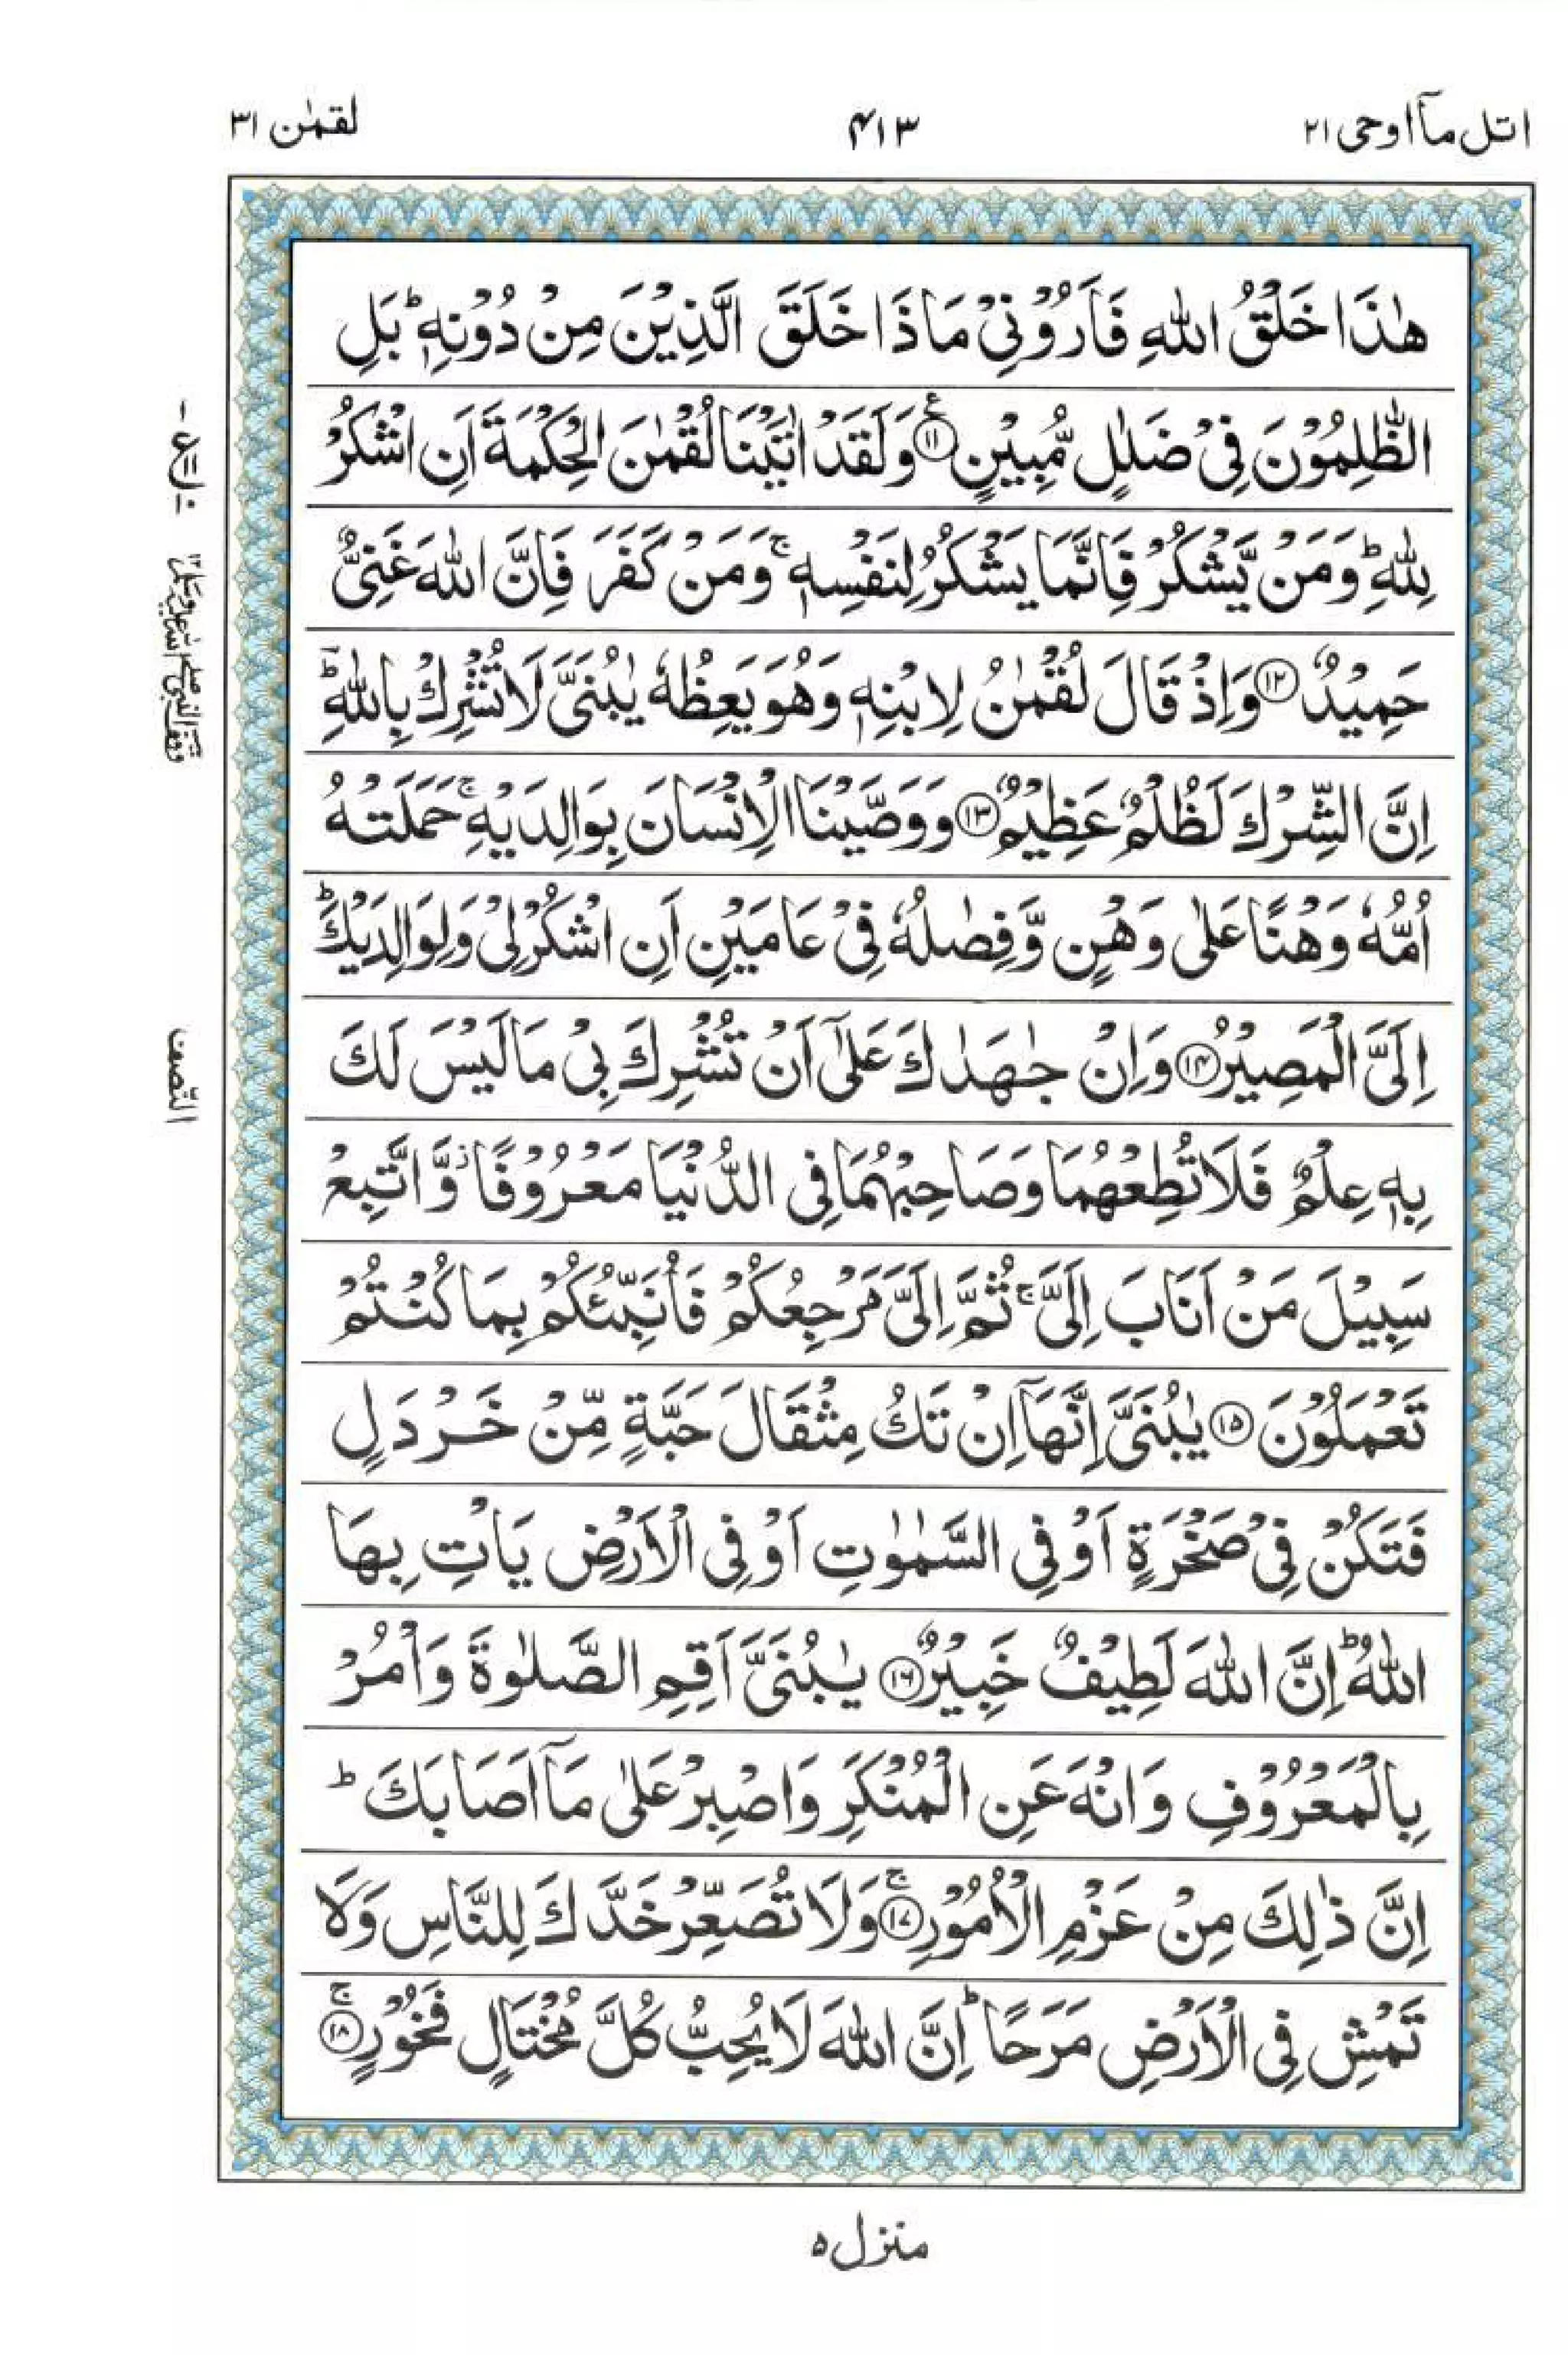 اتل مآ اوحی ۲۱ ۴۱۳ لقمٰن ۳۱
هٰذَا خَلْقُ اللّٰهِ فَاَرُوْنِیْ مَاذَا خَلَقَ الَّذِیْنَ مِنْ دُوْنِهٖ ؕ بَلِ
الظّٰلِمُوْنَ فِیْ ضَلٰلٍ مُّبِیْنٍ ﴿۱۱﴾ ع وَلَقَدْ اٰتَیْنَا لُقْمٰنَ الْحِكْمَةَ اَنِ اشْكُرْ
لِلّٰهِ ؕ وَمَنْ یَّشْكُرْ فَاِنَّمَا یَشْكُرُ لِنَفْسِهٖ ۚ وَمَنْ كَفَرَ فَاِنَّ اللّٰهَ غَنِیٌّ
حَمِیْدٌ ﴿۱۲﴾ وَاِذْ قَالَ لُقْمٰنُ لِابْنِهٖ وَهُوَ یَعِظُهٗ یٰبُنَیَّ لَا تُشْرِكْ بِاللّٰهِ ؕ
اِنَّ الشِّرْكَ لَظُلْمٌ عَظِیْمٌ ﴿۱۳﴾ وَوَصَّیْنَا الْاِنْسَانَ بِوَالِدَیْهِ ۚ حَمَلَتْهُ
اُمُّهٗ وَهْنًا عَلٰی وَهْنٍ وَّفِصٰلُهٗ فِیْ عَامَیْنِ اَنِ اشْكُرْ لِیْ وَلِوَالِدَیْكَ ؕ
اِلَیَّ الْمَصِیْرُ ﴿۱۴﴾ وَاِنْ جٰهَدٰكَ عَلٰۤی اَنْ تُشْرِكَ بِیْ مَا لَیْسَ لَكَ
بِهٖ عِلْمٌ فَلَا تُطِعْهُمَا وَصَاحِبْهُمَا فِی الدُّنْیَا مَعْرُوْفًا ؗ وَّاتَّبِعْ
سَبِیْلَ مَنْ اَنَابَ اِلَیَّ ۚ ثُمَّ اِلَیَّ مَرْجِعُكُمْ فَاُنَبِّئُكُمْ بِمَا كُنْتُمْ
تَعْمَلُوْنَ ﴿۱۵﴾ یٰبُنَیَّ اِنَّهَاۤ اِنْ تَكُ مِثْقَالَ حَبَّةٍ مِّنْ خَرْدَلٍ
فَتَكُنْ فِیْ صَخْرَةٍ اَوْ فِی السَّمٰوٰتِ اَوْ فِی الْاَرْضِ یَاْتِ بِهَا
اللّٰهُ ؕ اِنَّ اللّٰهَ لَطِیْفٌ خَبِیْرٌ ﴿۱۶﴾ یٰبُنَیَّ اَقِمِ الصَّلٰوةَ وَاْمُرْ
بِالْمَعْرُوْفِ وَانْهَ عَنِ الْمُنْكَرِ وَاصْبِرْ عَلٰی مَاۤ اَصَابَكَ ؕ
اِنَّ ذٰلِكَ مِنْ عَزْمِ الْاُمُوْرِ ۚ﴿۱۷﴾ وَلَا تُصَعِّرْ خَدَّكَ لِلنَّاسِ وَلَا
تَمْشِ فِی الْاَرْضِ مَرَحًا ؕ اِنَّ اللّٰهَ لَا یُحِبُّ كُلَّ مُخْتَالٍ فَخُوْرٍ ۚ﴿۱۸﴾
النّصف
منزل ۵